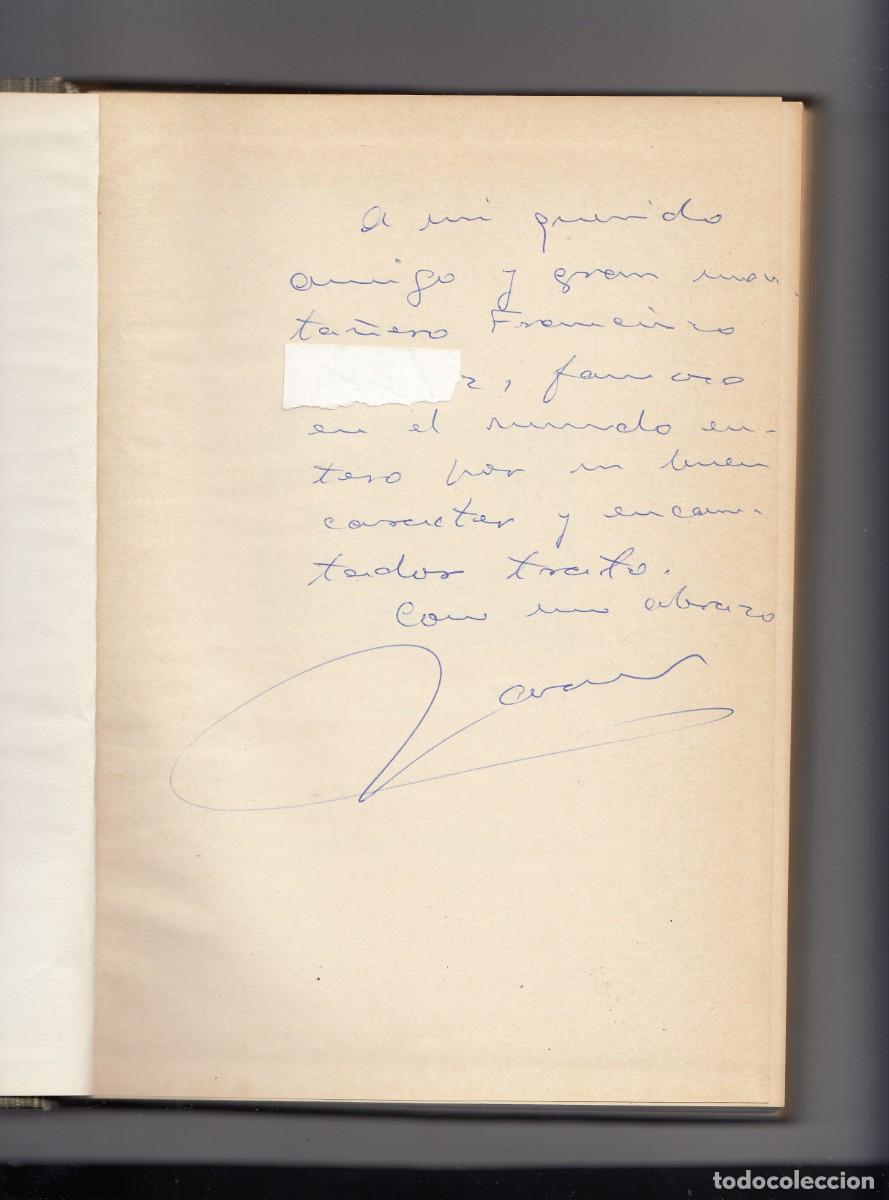 A mi querido
amigo y gran mon-
tañero Francisco
z, famoso
en el mundo en-
tero por su buen
caracter y encan-
tador trato.
Con un abrazo
todocoleccion